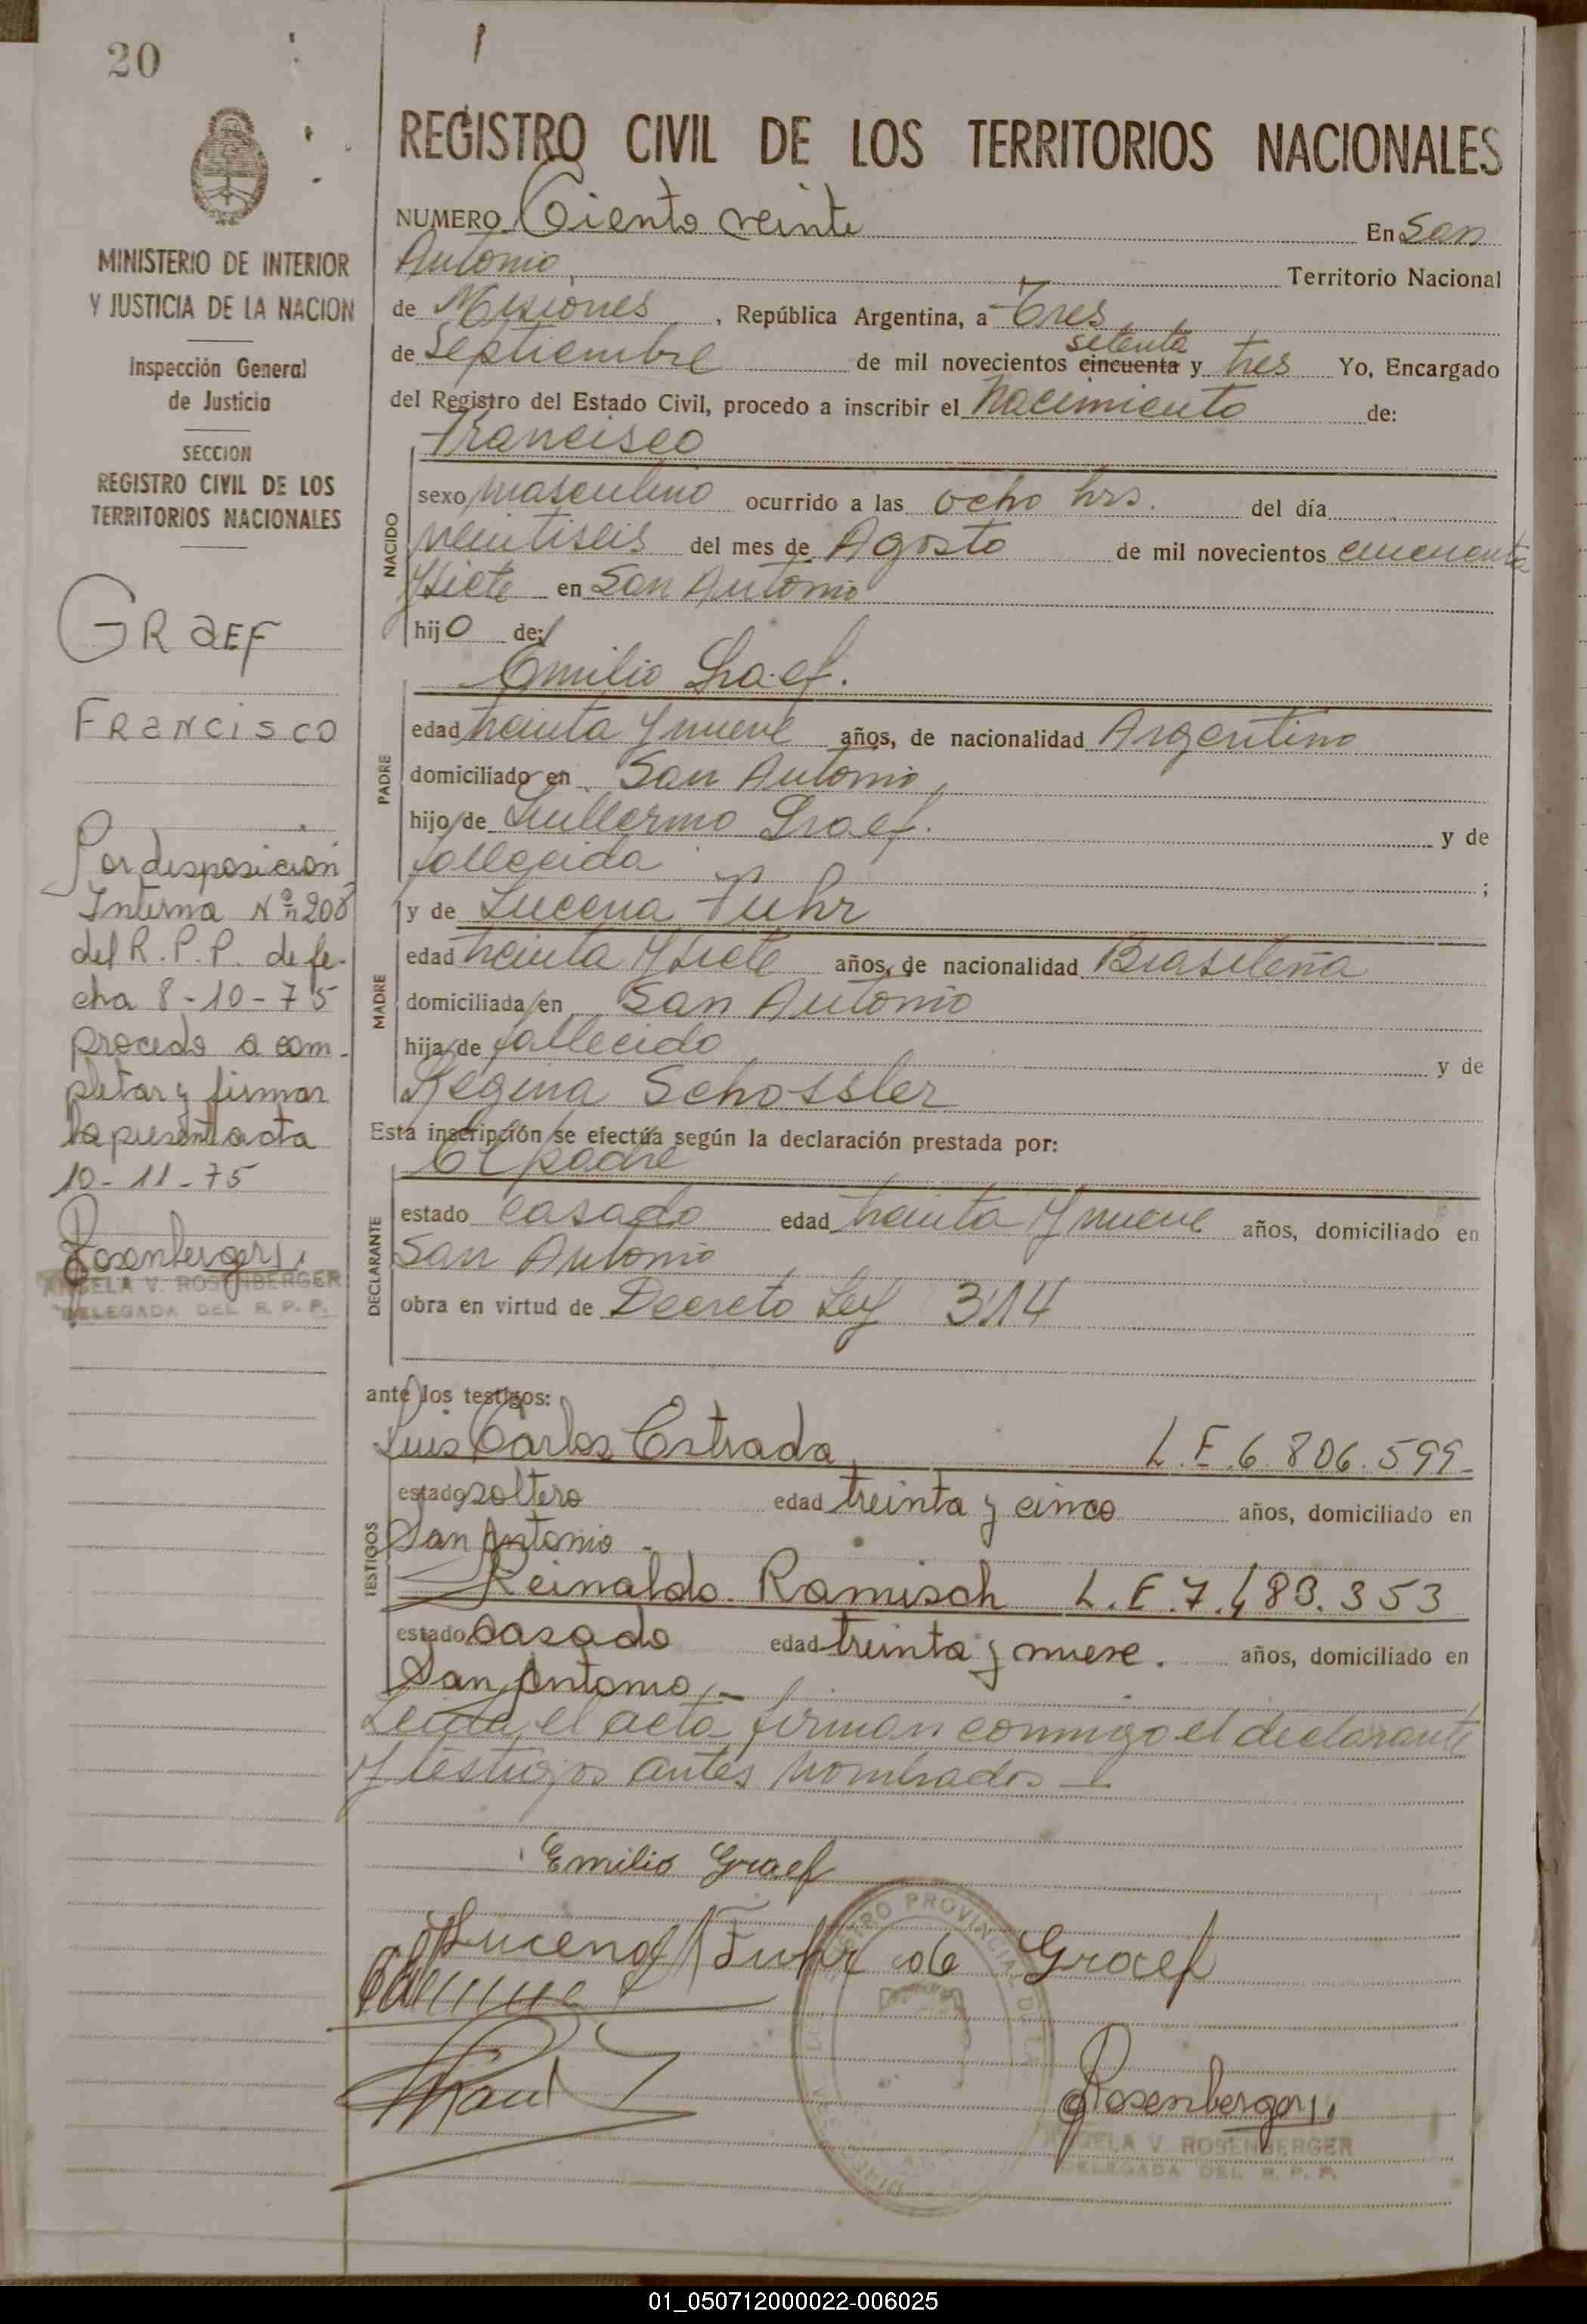 20
MINISTERIO DE INTERIOR
Y JUSTICIA DE LA NACION
Inspección General
de Justicia
SECCION
REGISTRO CIVIL DE LOS
TERRITORIOS NACIONALES
GRaEF
FRaNCiSCO
Por disposicion
Interna Nº 208
del R. P. P. de fe-
cha 8-10-75
procedo a com-
pletar y firmar
la presente acta
10-11-75
Rosenberger
ANGELA V. ROSENBERGER
DELEGADA DEL R. P. P.
REGISTRO CIVIL DE LOS TERRITORIOS NACIONALES
NUMERO Ciento veinte En San
Antonio Territorio Nacional
de Misiones, República Argentina, a Tres
setenta
de Septiembre de mil novecientos cincuenta y tres Yo, Encargado
del Registro del Estado Civil, procedo a inscribir el Nacimiento de:
Francisco
NACIDO
sexo masculino ocurrido a las ocho hrs. del día
veintiseis del mes de Agosto de mil novecientos cincuenta
y siete en San Antonio
hijo de:
Emilio Graef.
PADRE
edad treinta y nueve años, de nacionalidad Argentino
domiciliado en San Antonio
hijo de Guillermo Graef. y de
fallecida ;
y de Lucena Fuhr
MADRE
edad treinta y siete años, de nacionalidad Brasileña
domiciliada en San Antonio
hija de fallecido y de
Regina Schossler
Esta inscripción se efectúa según la declaración prestada por:
El padre
DECLARANTE
estado casado edad treinta y nueve años, domiciliado en
San Antonio
obra en virtud de Decreto Ley 314
ante los testigos:
Luis Carlos Estrada L.E. 6.806.599-
TESTIGOS
estado soltero edad treinta y cinco años, domiciliado en
San Antonio -
Reinaldo Ramisch L.E. 7.483.353
estado casado edad treinta y nueve. años, domiciliado en
San Antonio. -
Leida el acta firman conmigo el declarante
y testigos antes nombrados -
Emilio Graef
Lucena Fuhr de Graef
Rosenberger
ANGELA V. ROSENBERGER
DELEGADA DEL R. P. P.
01_050712000022-006025